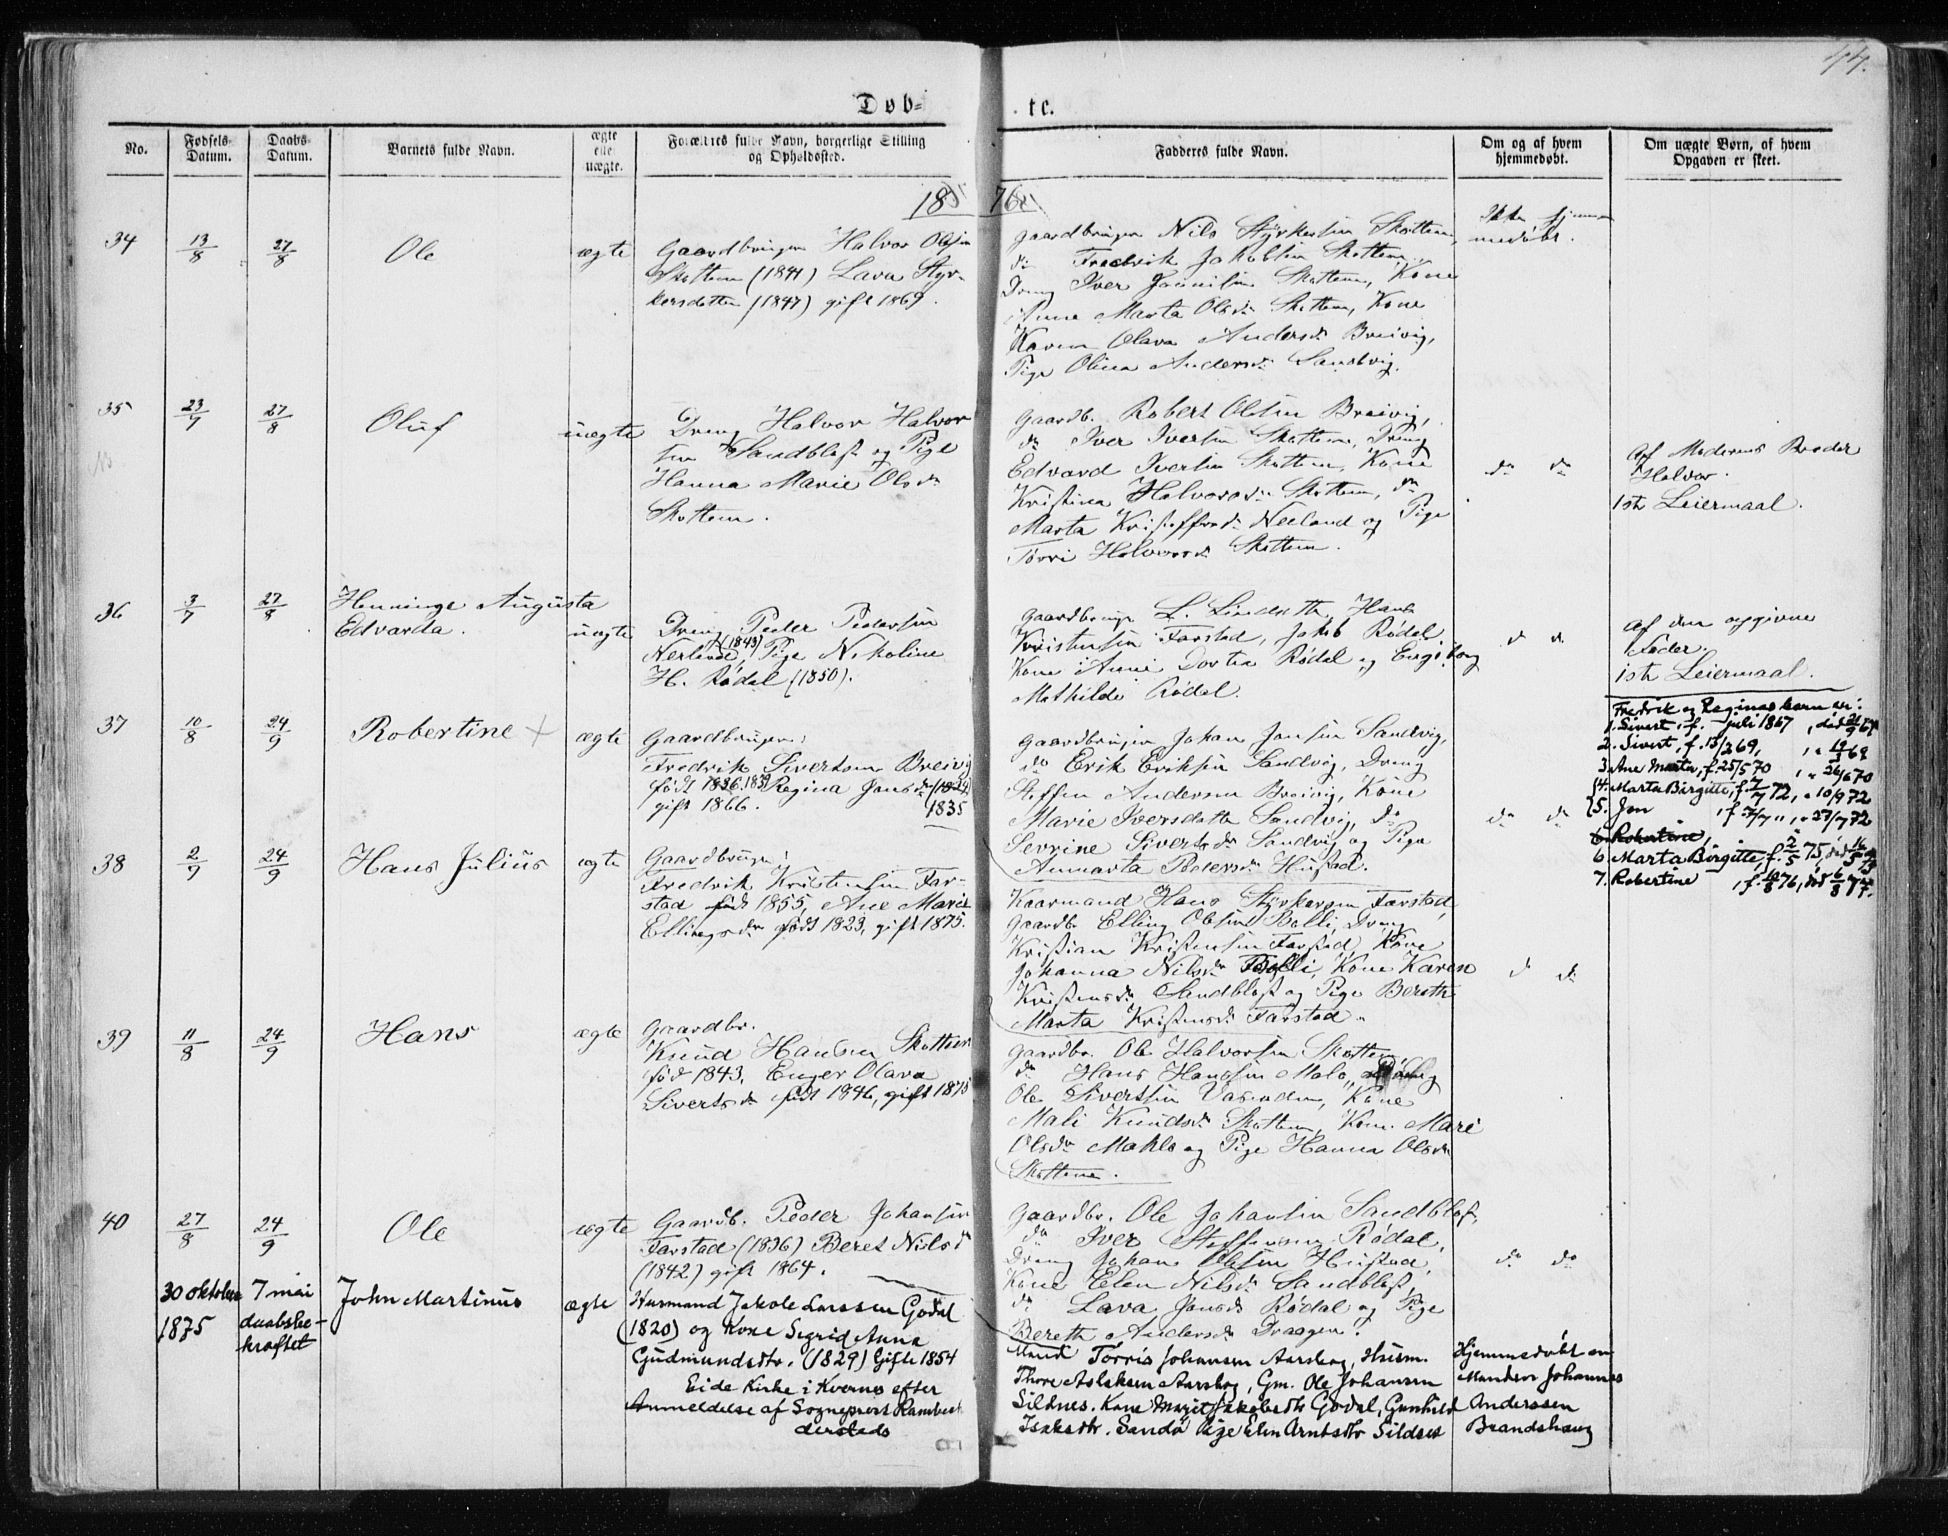 44.
Døb- te.
No.
Fødsels-
Datum.
Daabs-
Datum.
Barnets fulde Navn.
ægte
eller
uægte.
Forældres fulde Navn, borgerlige Stilling
og Opholdssted.
Faddernes fulde Navn.
Om og af hvem
hjemmedøbt.
Om uægte Børn, af hvem
Opgaven er skeet.
1876
34
13/8
27/8
Ole
ægte
Gaardbruger Halvor Olsen
Skottem (1841) Lava Styr-
korsdatter (1847) gift 1869.
Gaardbruger Nils Styrkersen Skottem,
do Fredrik Jakobsen Skottem,
Dreng Iver Skottem, Kone
Anne Marta Olsdr Skottem, Kone
Karen Olava Andersdr Breivig,
Pige Olina Andersdr Sandvig.
Ikke hjem-
medøbt.
35
23/7
27/8
Oluf
uægte
Dreng Halvor Halvor-
sen Sandblest og Pige
Hanna Marie Olsdr
Skottem.
Gaardb. Robert Olsen Breivig,
do Iver Iversen Skottem, Dreng
Edvard Iversen Skottem, Kone
Kristina Halvorsdr Skottem, do
Marta Kristoffersdr Neeland og Pige
Torri Halvorsdr Skottem.
do do
af Moderens Broder
Halvor.
1ste Leiermaal.
36
3/7
27/8
Henninge Augusta
Edvarda.
uægte
Dreng Peder Pedersen
Nerland (1843), Pige Nikoline
H. Rødal (1850).
Gaardbruger L. Lindseth, Hans
Kristensen Farstad, Jakob Rødal,
Kone Anne Dortea Rødal og Engeborg
Mathilde Rødal.
do do
af den opgivne
Fader.
1ste Leiermaal.
37
10/8
24/9
Robertine +
ægte
Gaardbruger:
Fredrik Sivertsen Breivig
født 1836. 1839 Regina Jonsdr (1829)
gift 1866. 1835
Gaardbruger Johan Jonsen Sandvig,
do Erik Eriksen Sandvig, Dreng
Steffen Andersen Breivig, Kone
Marie Iversdatter Sandvig, do
Sevrine Sivertsdr Sandvig og Pige
Anmarta Pedersdr Hustad.
do do
Fredrik og Reginas barn er:
1. Sivert, f. – juli 1867, død 21/9 67
2. Sivert, f. 13/2 69, " 19/3 69
3. Ane Marta, f. 25/5 70 " 26/6 70
4. Marta Birgitte, f. 7/7 72, " 10/9 72
5. Jon , f. 7/7 " , " 27/7 72
6. Robertine,
6. Marta Birgitte, f. 2/5 75, død 16/5 75
7. Robertine , f. 10/8 76, død 6/8 77.
38
2/9
24/9
Hans Julius
ægte
Gaardbruger:
Fredrik Kristensen Far-
stad født 1855, Ane Marie
Ellingsdr født 1823, gift 1875.
Kaarmand Hans Styrkersen Farstad,
Gaardb. Elling Olsen Bolli, Dreng
Kristian Kristensen Farstad, Kone
Johanna Nilsdr Bolli, Kone Karen
Kristensdr Sandblest og Pige Bereth
Marta Kristensdr Farstad.
do do
39
11/8
24/9
Hans
ægte
Gaardbr.
Knud Hansen Skottem
født 1843, Enger Olava
Sivertsdr født 1846, gift 1875
Gaardbr. Ole Halvorsen Skottem,
do Hans Hanssen Malo,
Ole Sivertsen Vasenden, Kone
Mali Knudsdr Skottem, Kone Mari
Olsdr Mahlo og Pige Hanna Olsdr
Skottem.
40
27/8
24/9
Ole
ægte
Gaardb. Peder Johansen
Farstad (1836) Beret Nilsdr
(1842) gift 1864.
Gaardbr. Ole Johansen Sandblest,
do Iver Steffensen Rødal,
Dreng Johan Olsen Hustad,
Kone Elen Nilsdr Sandblest,
do Lava Jonsdr Rødal og Pige
Bereth Andersdr Draagen.
do do
30 oktober
1875
7 mai
daabsbe-
kræftet
John Martinus
ægte
Husmand Jakob Larssen Godal
(1820) og Kone Sigrid Anna
Gudmundsdtr. (1829) Gifte 1854
Eide Kirke i Kvernes efter
Anmeldelse af Sogneprest
Mand Torris Johansen Aarsbog, Husm.
Thore Aslaksen Aarsbog, Gm. Ole Johansen
Sildnes. Kone Marjit Jakobsdtr Godal, Gunhild
Isaksdtr. Sandø Pige Elen Arntsdtr Sildnes
Hjemmedøbt av
Manden Johannes
Anderssen
Brandshaug